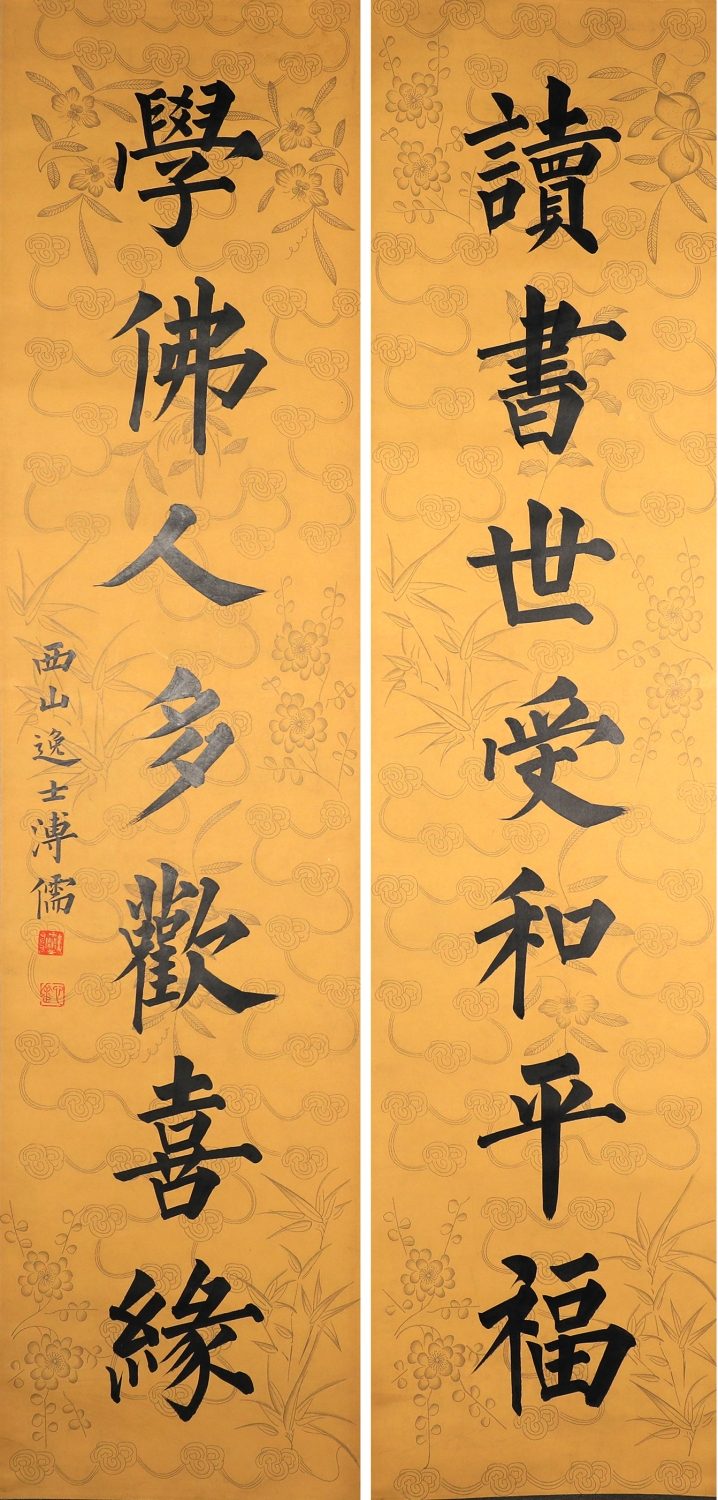 讀書世受和平福
學佛人多歡喜緣
西山逸士溥儒